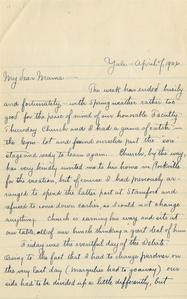 Yale - April 7, 1924
My dear Mama -
The week has ended busily
and fortunately - with spring weather rather too
good for the peace of mind of our honorable Faculty.
Thursday Church and I had a game of catch in
the Gym lot and found ourselves put the
stage and ready to learn again. Church, by the way,
has very kindly invited me to his home in
for the vacation, but of course I had previously ar-
ranged to spend the latter part at Stamford and
refused to come down earlier, so I could not change
anything. Church is earning his way and sits at
our table, all of our bunch thinking a great deal of him.
Friday was the eventful day of the debate.
Owing to the fact that I had to change pardners on
the very last day (Margulies had to go away) our
side had to be divided up a little differently, but